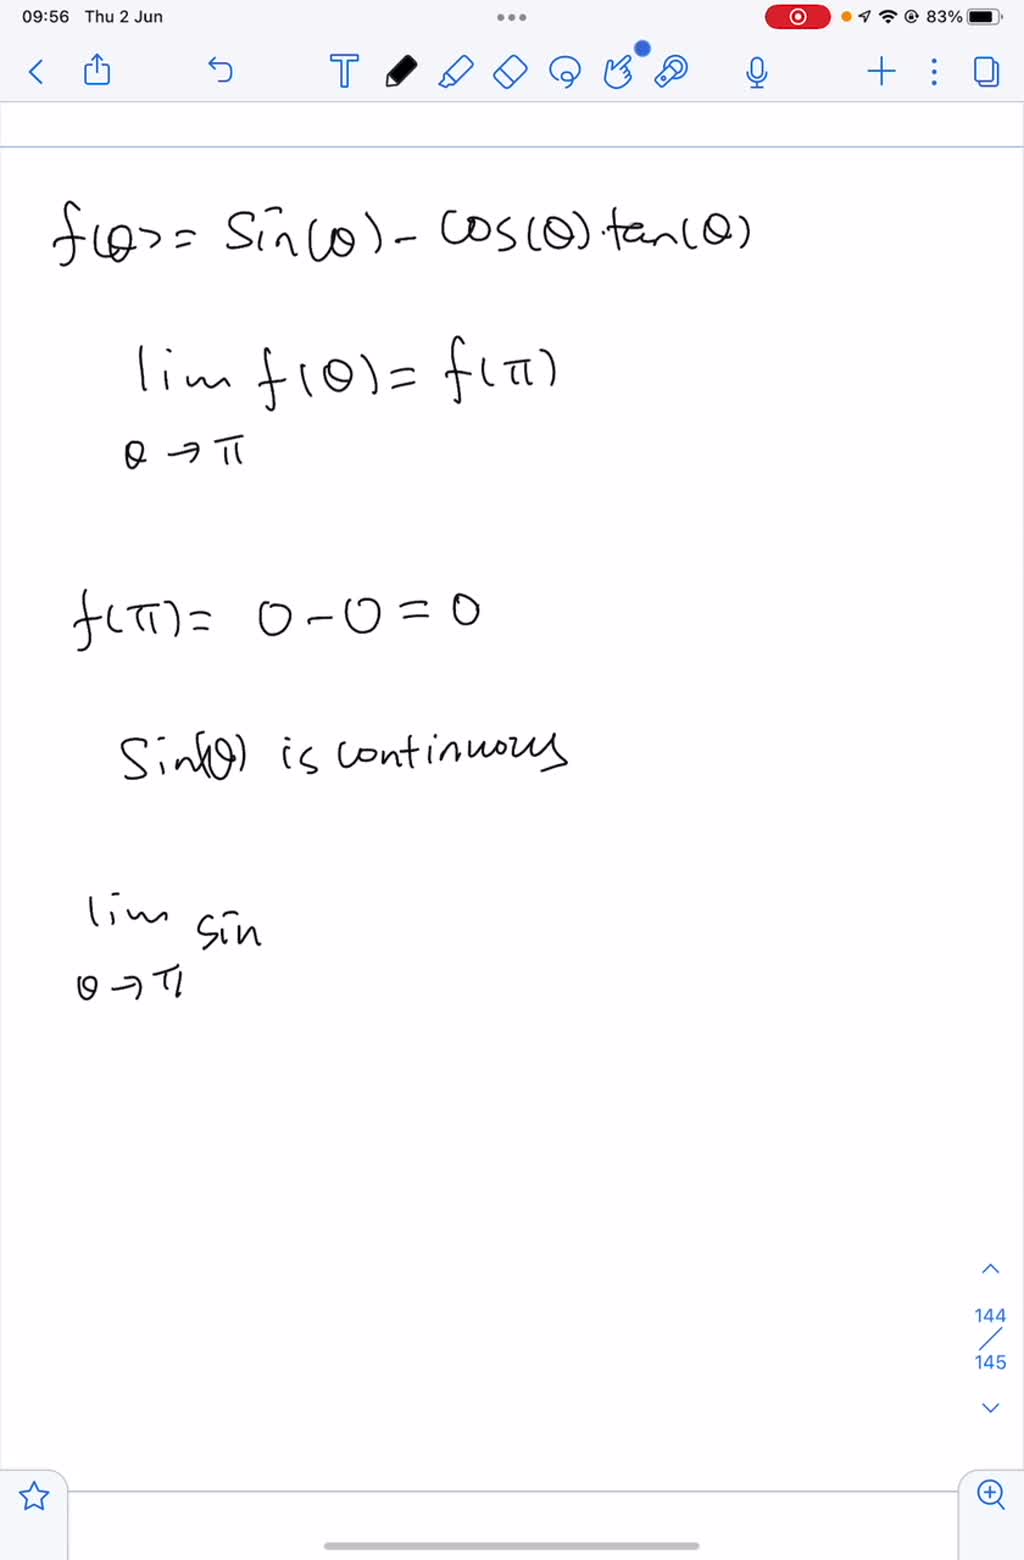 09:56 Thu 2 Jun 83%
f(θ) = sin(θ) - cos(θ)·tan(θ)
lim f(θ) = f(π)
θ → π
f(π) = 0 - 0 = 0
Sin(θ) is continuous
lim sin
θ → π
144
/
145